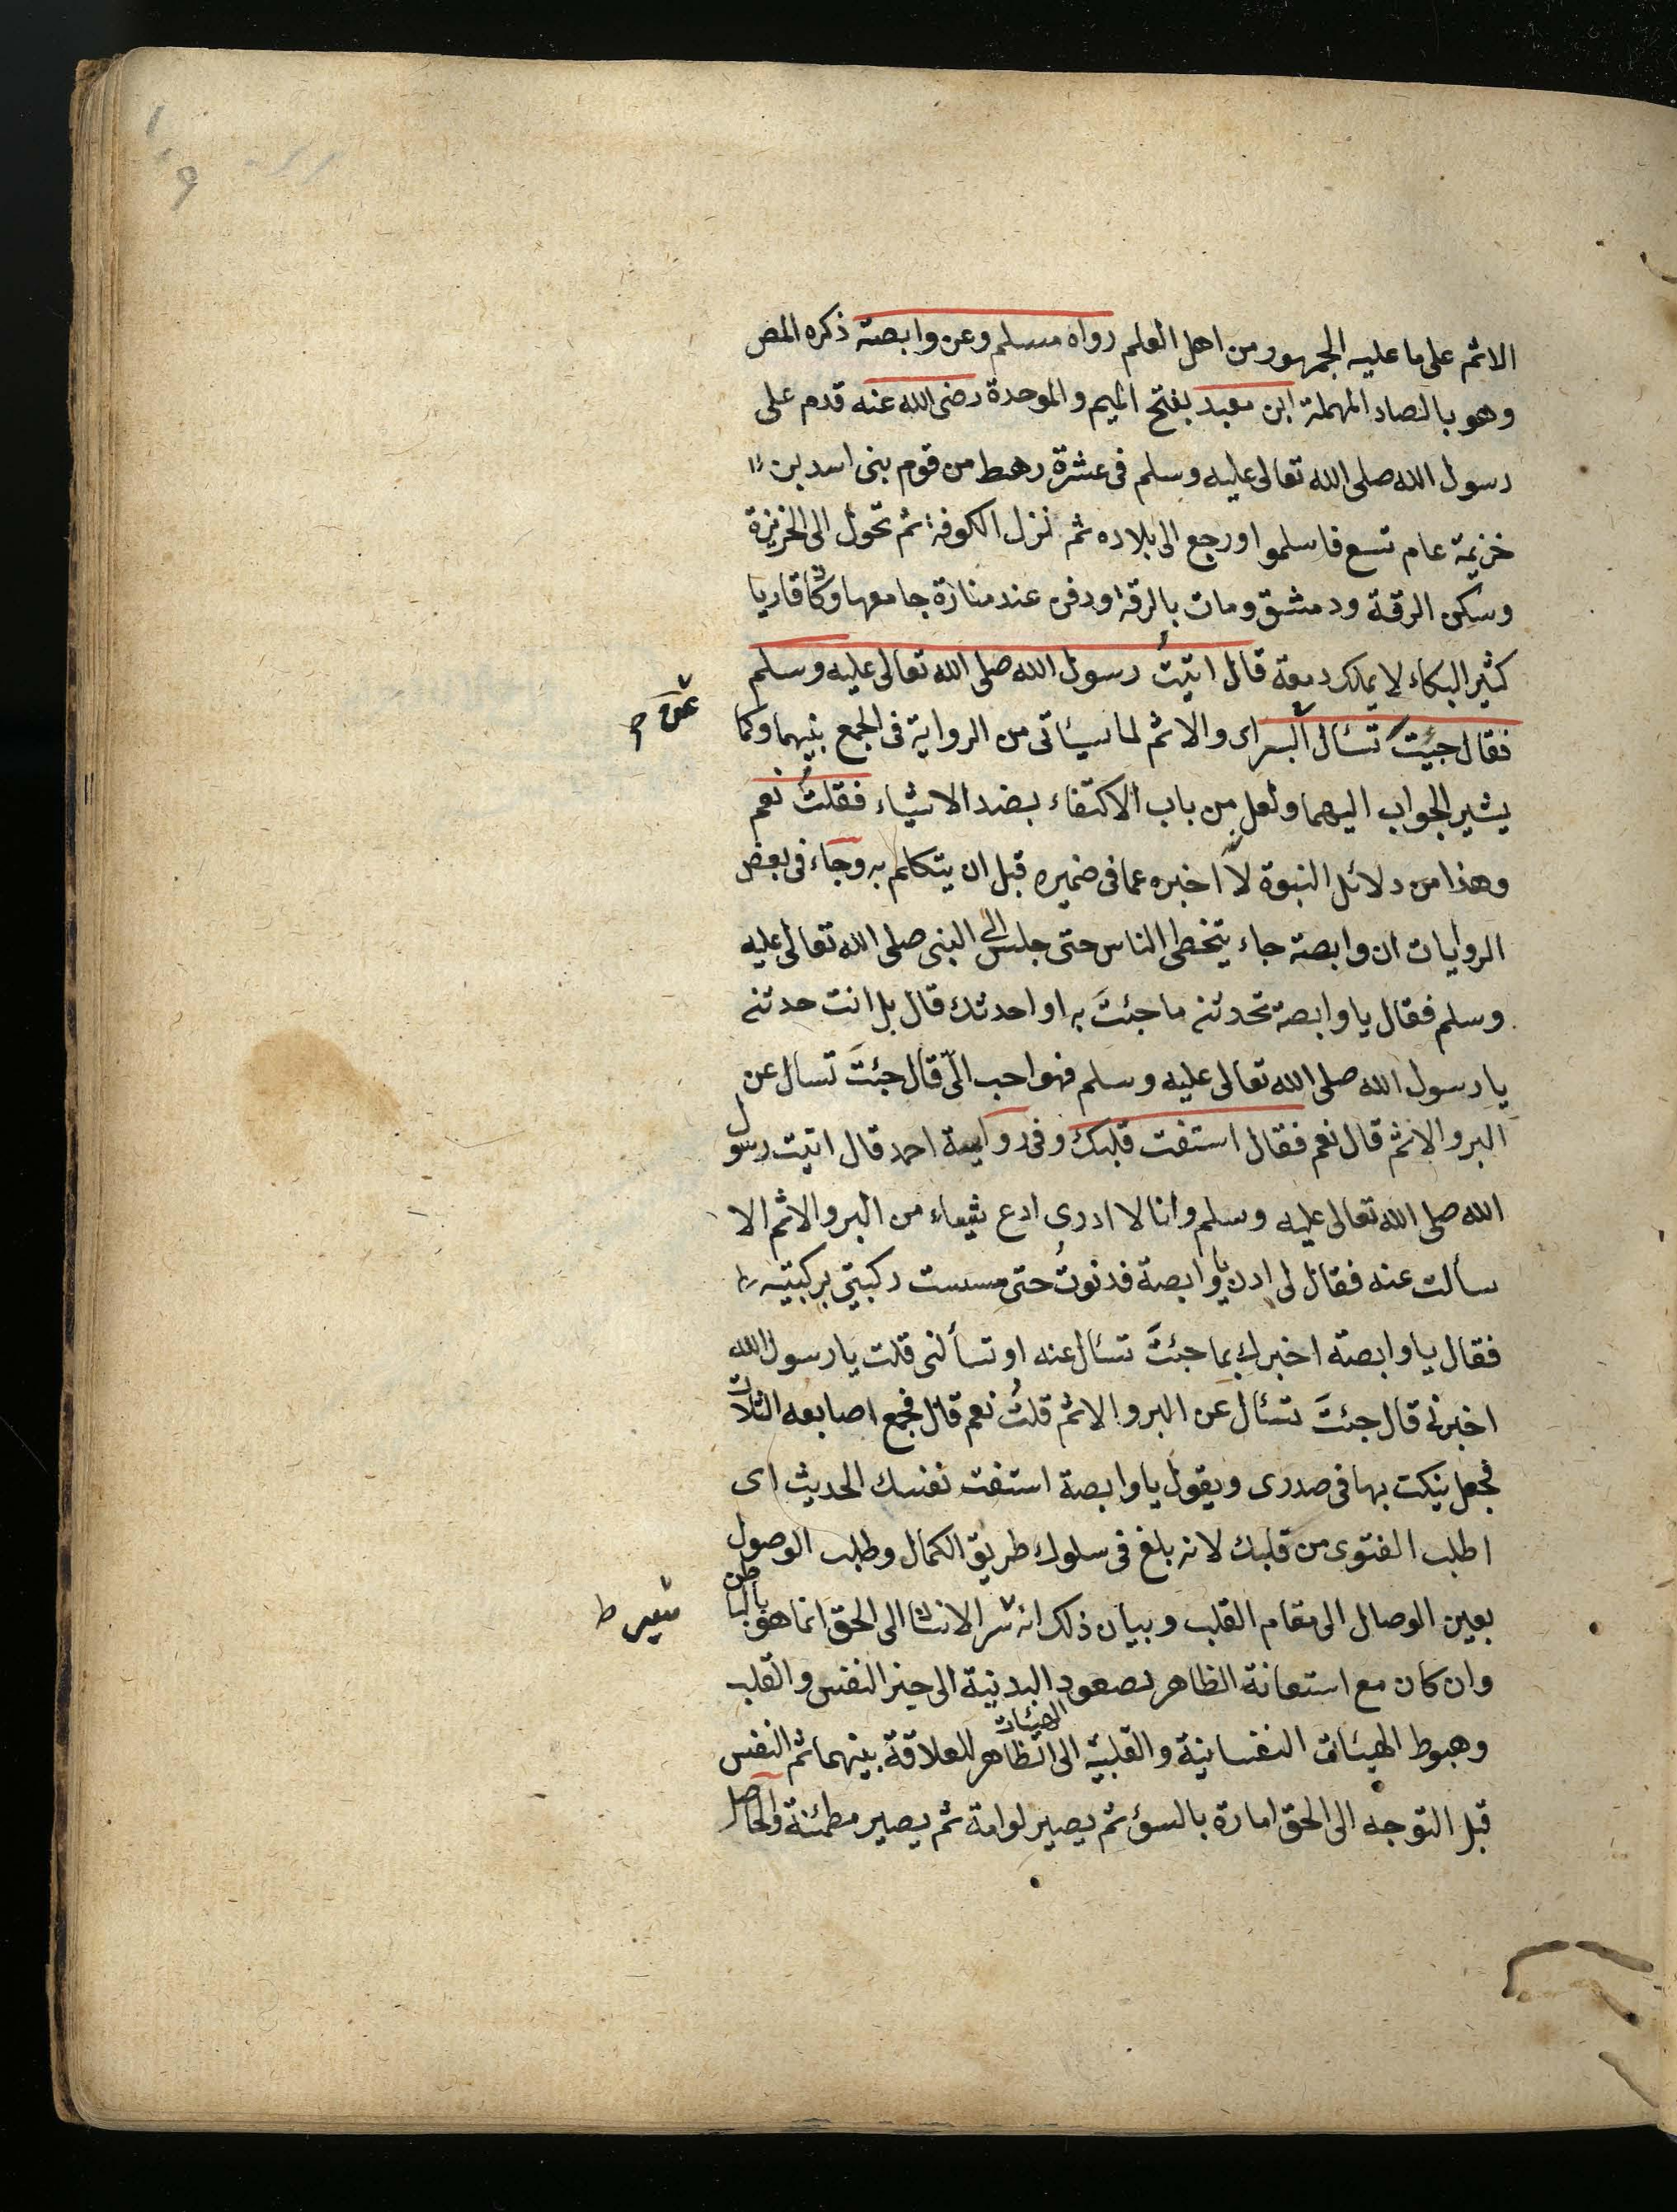 الاثم على ما عليه الجمهور من اهل العلم رواه مسلم وعن وابصة ذكره المص
وهو بالصاد المهملة ابن معبد بفتح الميم والموحدة رضى الله عنه قدم على
رسول الله صلى الله تعالى عليه وسلم فى عشرة رهط من قوم بنى اسد بن
خزيمة عام تسع فاسلموا ورجع الى بلاده ثم نزل الكوفة ثم تحول الى الخزيزة
وسكن الرقة ودمشق ومات بالرقة ودفن عند منارة جامعها وكان قاريا
كثير البكاء لا يملك دمعة قال اتيتُ رسول الله صلى الله تعالى عليه وسلم
فقال جيئتَ تسئال البر اى والاثم لما سيئاتى من الرواية فى الجمع بينهما وكما
عن
يشير الجواب اليهما ولعل من باب الاكتفاء بضد الاشياء فقلتُ نعم
وهذا من دلائل النبوة لانه اخبره عما فى ضميره قبل ان يتكلم به وجاء فى بعض
الروايات ان وابصة جاء يتخطى الناس حتى جلس الى النبى صلى الله تعالى عليه
وسلم فقال يا وابصة تحدثنى ما جئتَ به او احدثك قال بل انت حدثنى
يا رسول الله صلى الله تعالى عليه وسلم فهو احب الىّ قال جئتَ تسال عن
البر والاثم قال نعم فقال استفت قلبك وفى رواية احمد قال اتيت رسول
الله صلى الله تعالى عليه وسلم وانا لا ادرى ادع شيئاء من البر والاثم الا
سألت عنه فقال لى ادن يا وابصة فدنوتُ حتى مسست ركبتى بركبتيه
فقال يا وابصة اخبرك بما جئتَ تسئال عنه او تسألنى قلت يا رسول الله
اخبرنى قال جئتَ تسئال عن البر والاثم قلتُ نعم قال فجمع اصابعه الثلاث
فجعل ينكت بها فى صدرى ويقول يا وابصة استفت نفسك الحديث اى
اطلب الفتوى من قلبك لانه بلغ فى سلوك طريق الكمال وطلب الوصول
بعين الوصال الى مقام القلب وبيان ذلك انه سير الانسان الى الحق انما هو بالباطن
سير ط
وان كان مع استعانة الظاهر لصعود الهيئات البدنية الى حيز النفس والقلب
وهبوط الهيئات النفسانية والقلبية الى الظاهر للعلاقة بينهما ثم النفس
قبل التوجه الى الحق امارة بالسؤ ثم يصير لوامة ثم يصير مطمئنة والحاصل